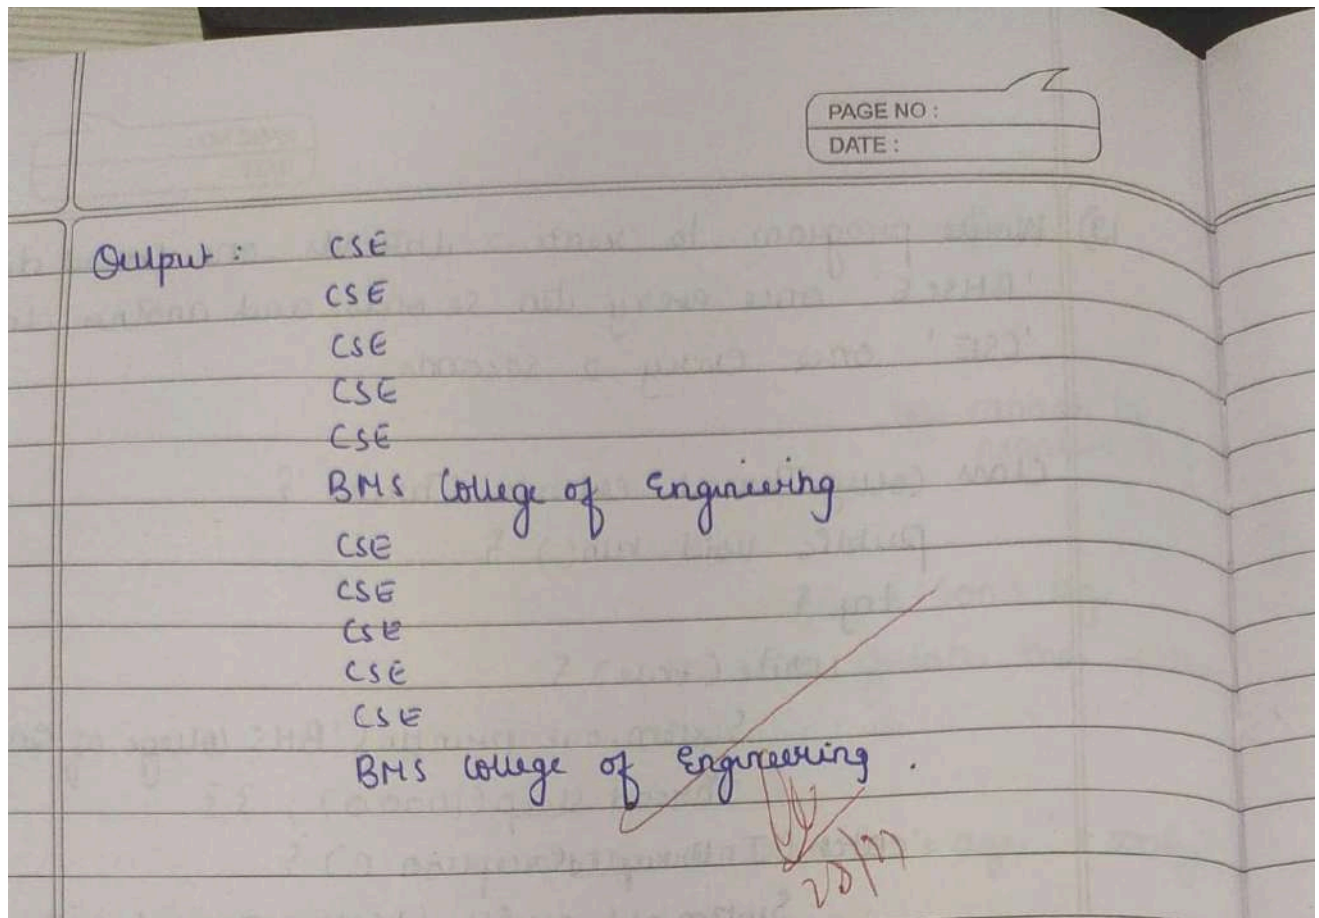 PAGE NO :
DATE :
Output : CSE
CSE
CSE
CSE
CSE
BMS College of Engineering
CSE
CSE
CSE
CSE
CSE
BMS College of Engineering .